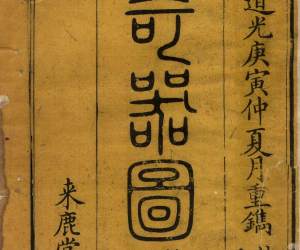 道光庚寅仲夏月重鐫
奇器圖
来鹿堂